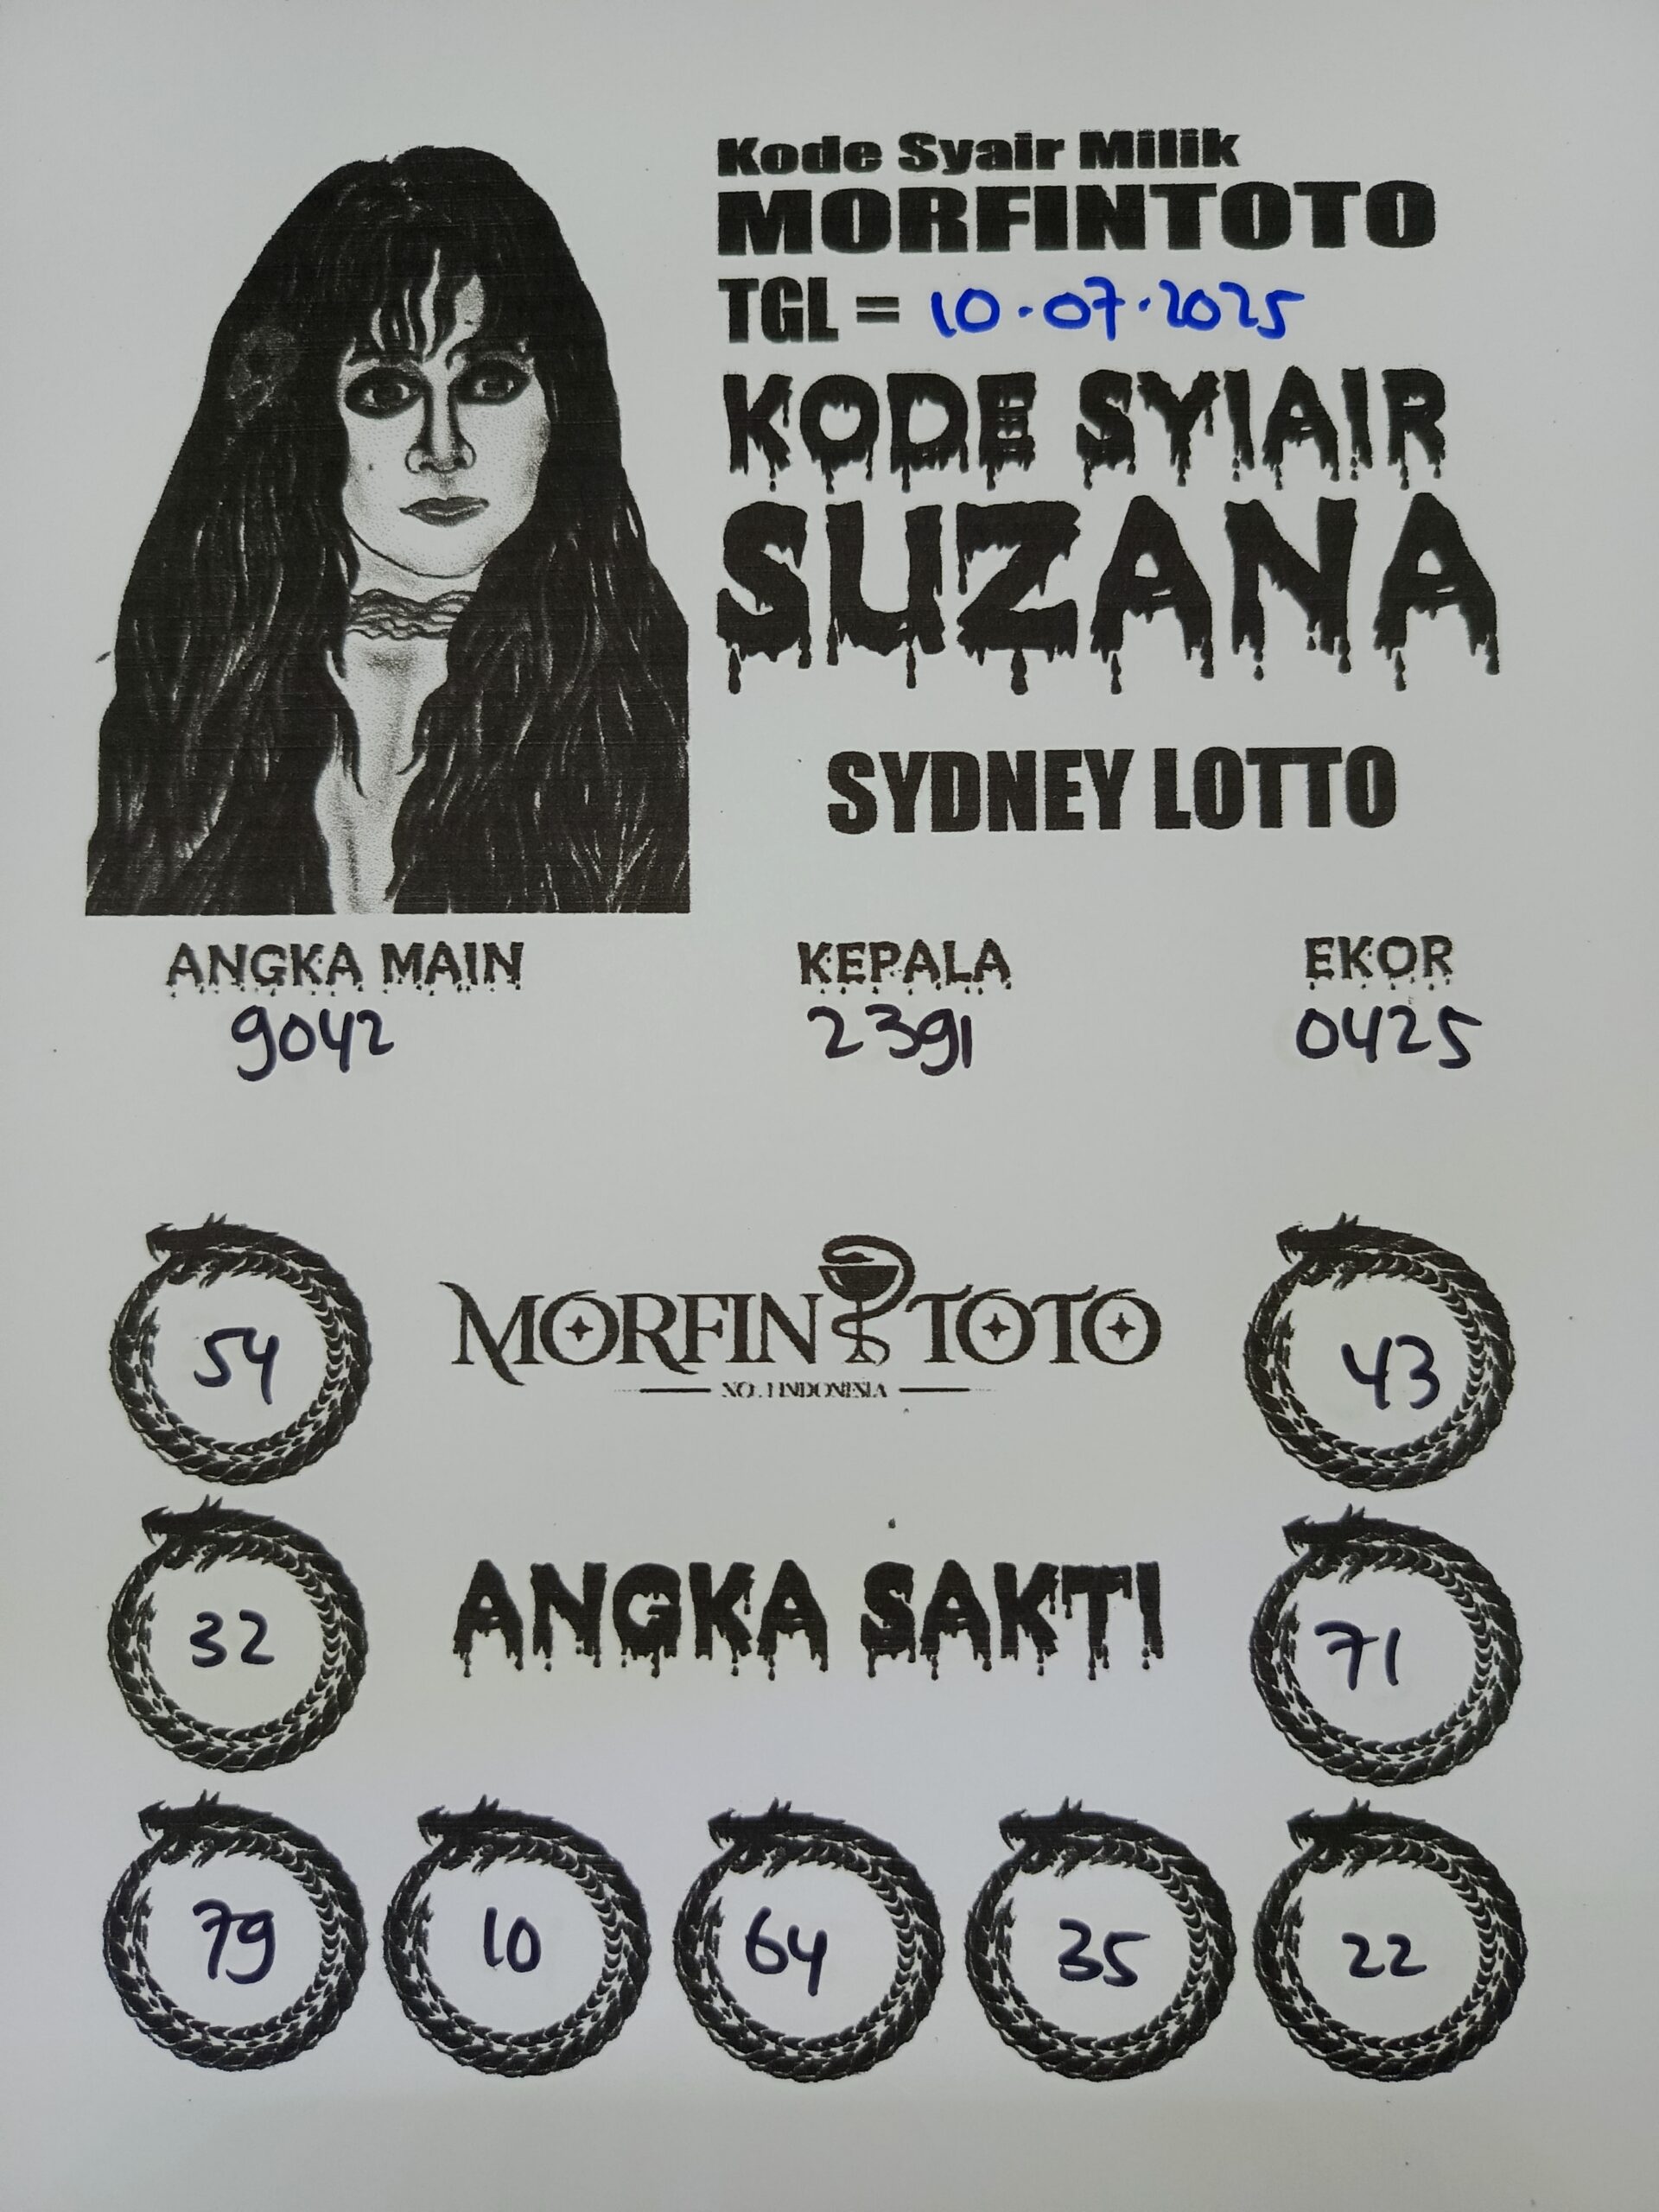 Kode Syair Milik
MORFINTOTO
TGL = 10.07.2025
KODE SYIAIR
SUZANA
SYDNEY LOTTO
ANGKA MAIN KEPALA EKOR
9042 2391 0425
MORFIN TOTO
NO. 1 INDONESIA
54 43
ANGKA SAKTI
32 71
79 10 64 35 22